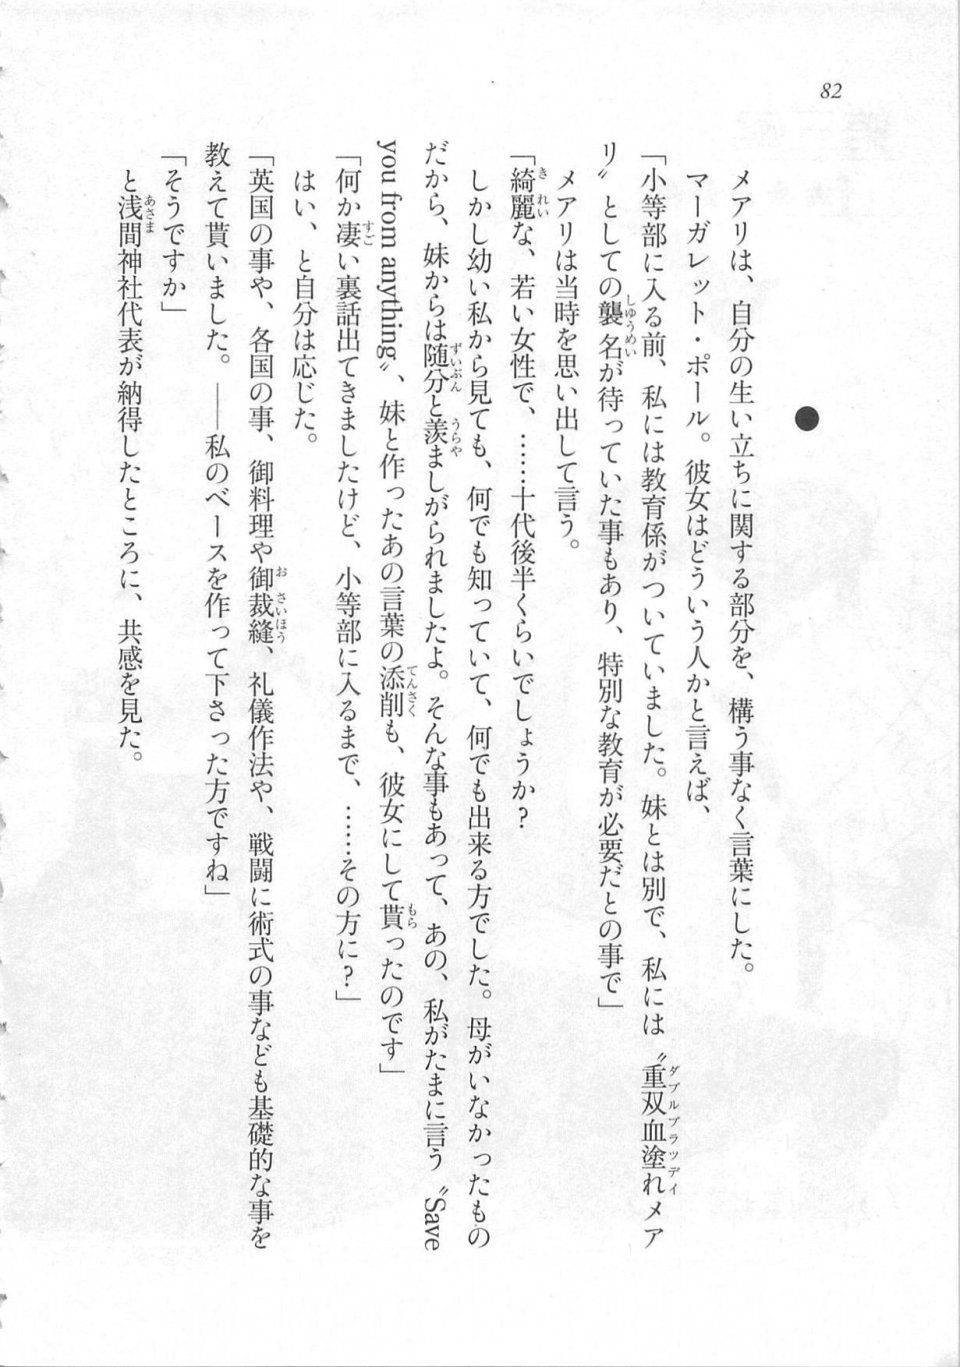 82
●
メアリは、自分の生い立ちに関する部分を、構う事なく言葉にした。
マーガレット・ポール。彼女はどういう人かと言えば、
「小等部に入る前、私には教育係がついていました。妹とは別で、私には〝重双血塗れメア
リ〟としての襲名が待っていた事もあり、特別な教育が必要だとの事で」
メアリは当時を思い出して言う。
「綺麗な、若い女性で、……十代後半くらいでしょうか?
しかし幼い私から見ても、何でも知っていて、何でも出来る方でした。母がいなかったもの
だから、妹からは随分と羨ましがられましたよ。そんな事もあって、あの、私がたまに言う〝Save
you from anything〟、妹と作ったあの言葉の添削も、彼女にして貰ったのです」
「何か凄い裏話出てきましたけど、小等部に入るまで、……その方に?」
はい、と自分は応じた。
「英国の事や、各国の事、御料理や御裁縫、礼儀作法や、戦闘に術式の事なども基礎的な事を
教えて貰いました。――私のベースを作って下さった方ですね」
「そうですか」
と浅間神社代表が納得したところに、共感を見た。